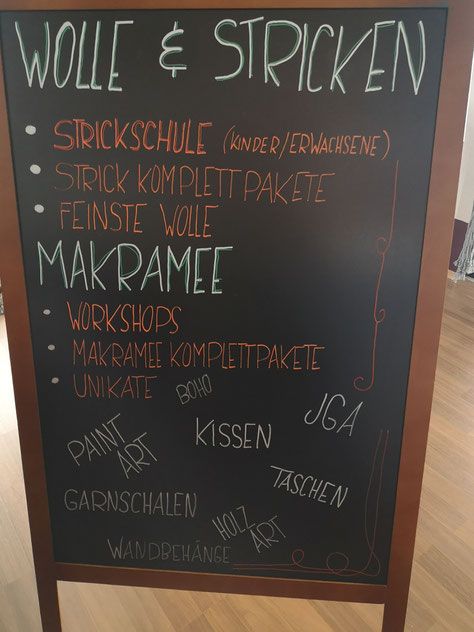 WOLLE & STRICKEN
• STRICKSCHULE (KINDER/ERWACHSENE)
• STRICK KOMPLETTPAKETE
• FEINSTE WOLLE
MAKRAMEE
• WORKSHOPS
• MAKRAMEE KOMPLETTPAKETE
• UNIKATE
BOHO
JGA
PAINT
ART
KISSEN
TASCHEN
GARNSCHALEN
HOLZ
ART
WANDBEHÄNGE